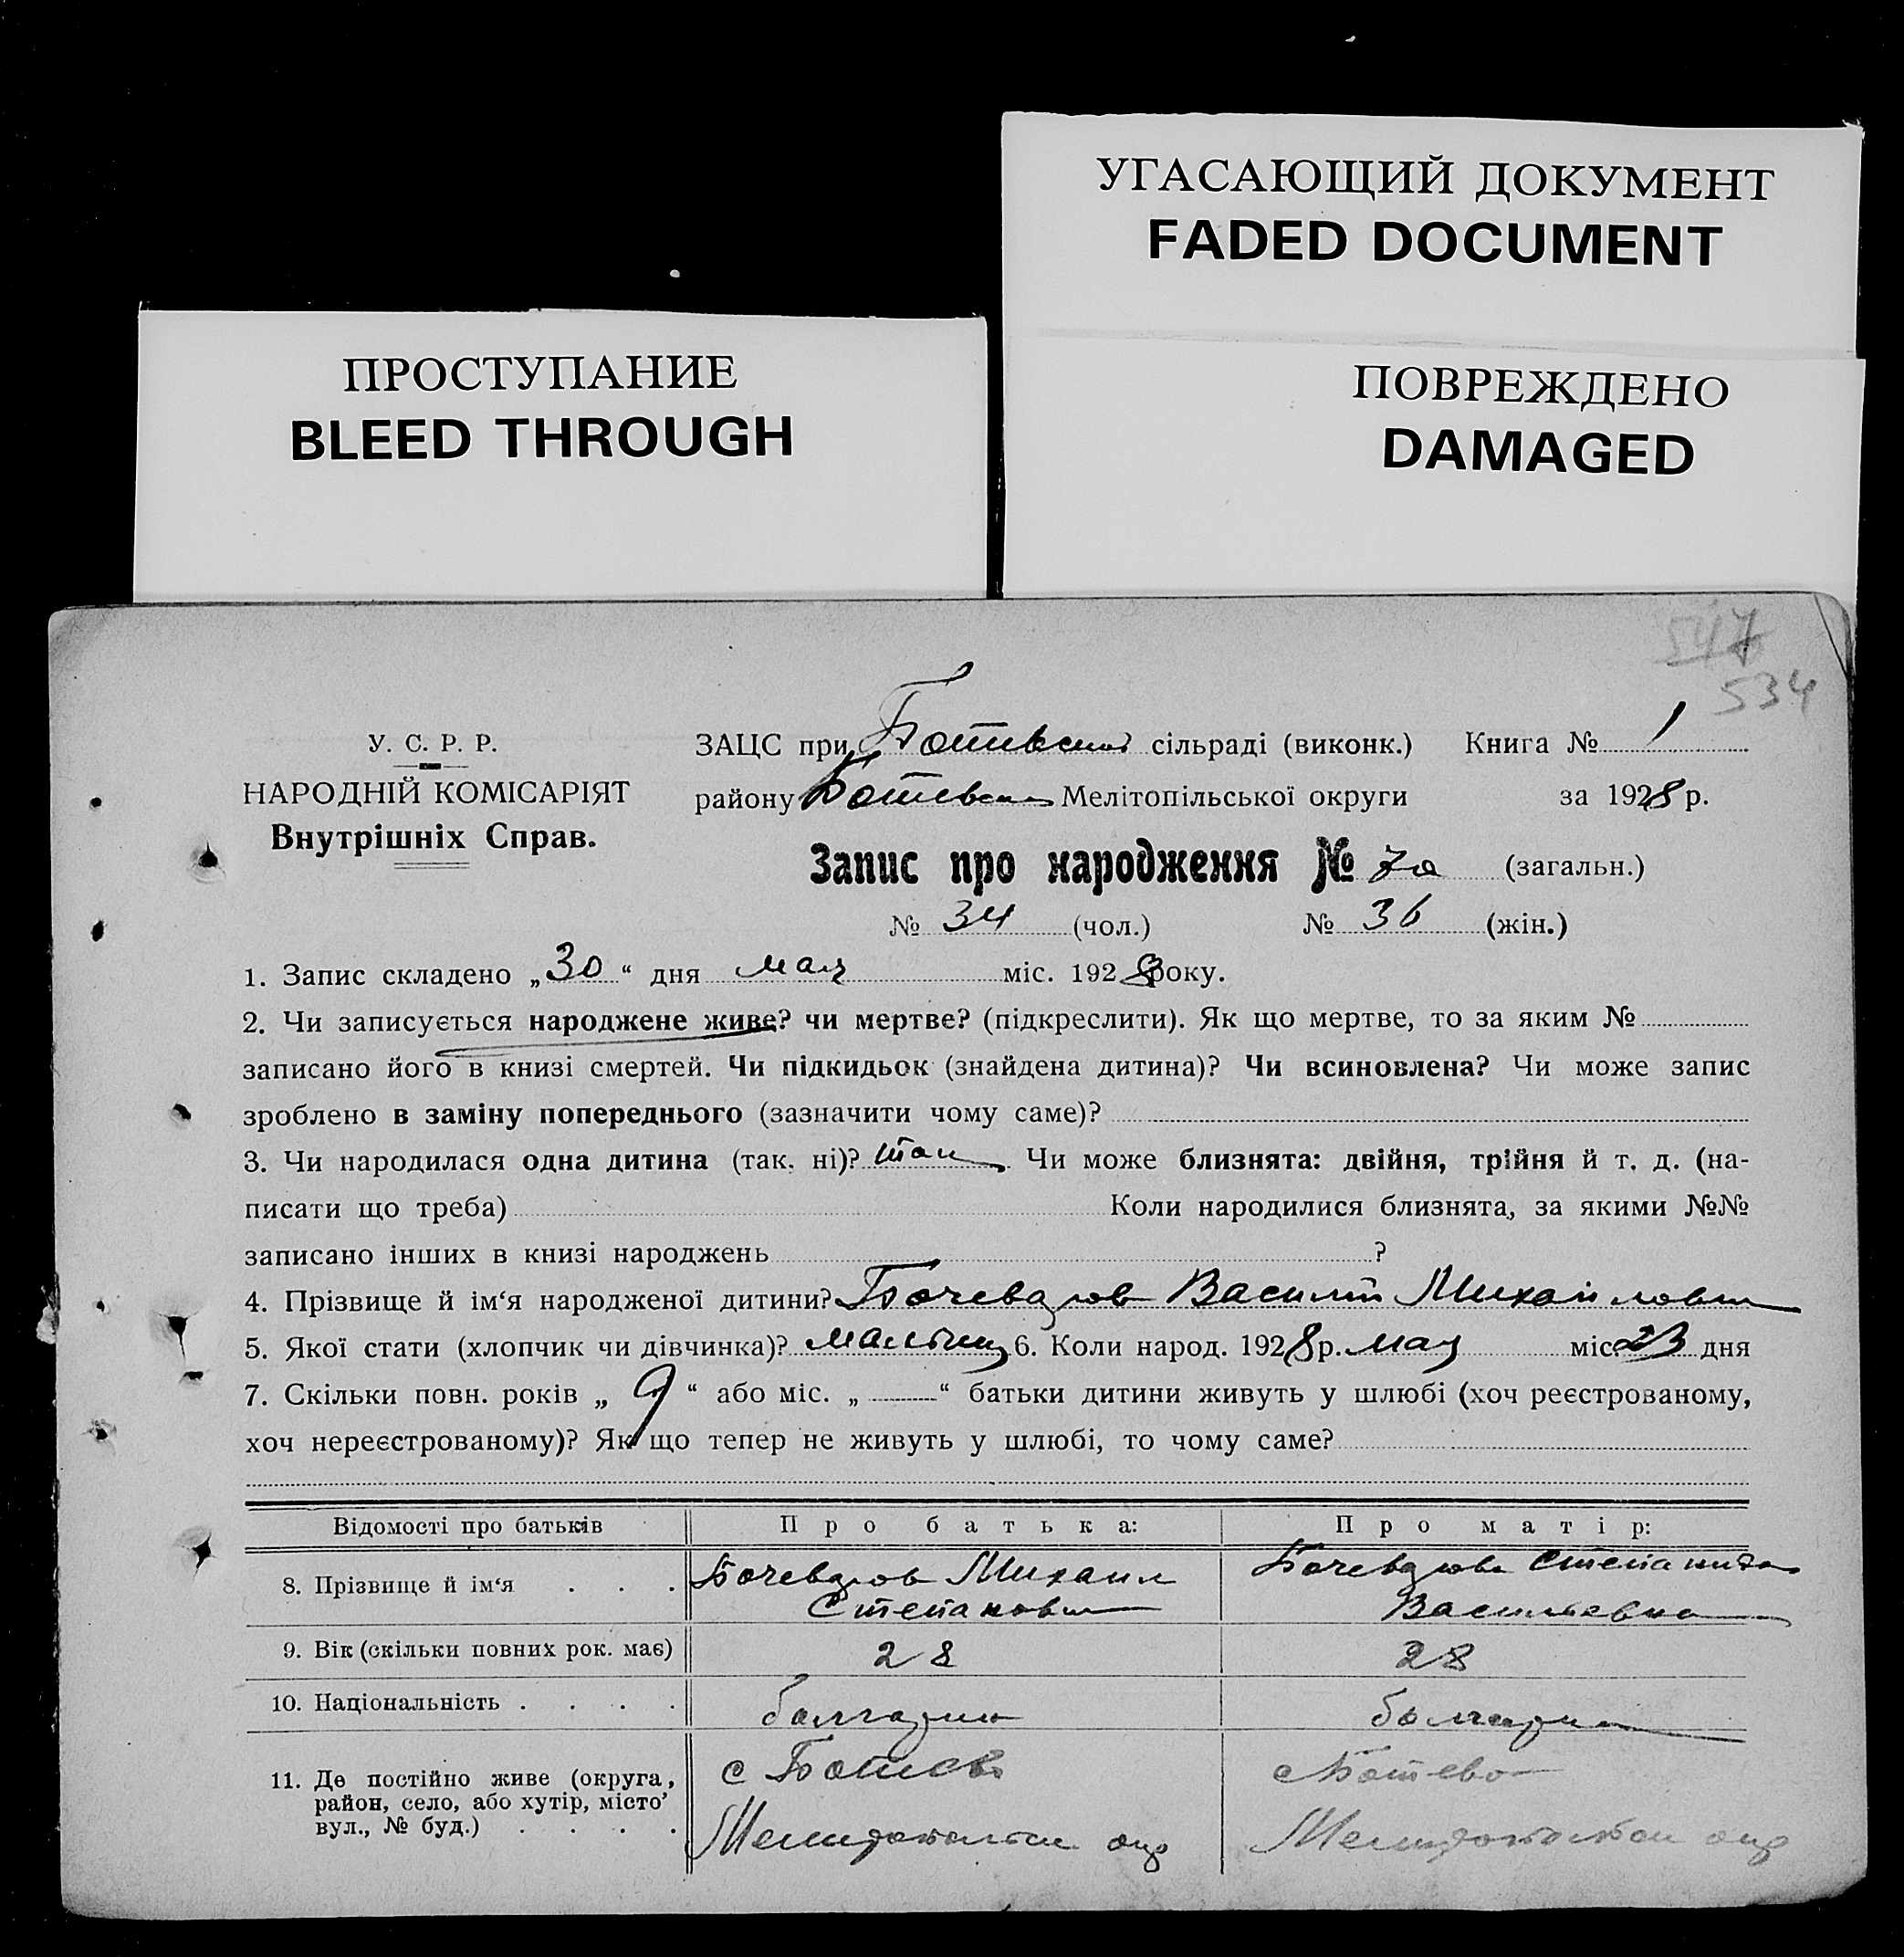 УГАСАЮЩИЙ ДОКУМЕНТ
FADED DOCUMENT
ПРОСТУПАНИЕ
BLEED THROUGH
ПОВРЕЖДЕНО
DAMAGED
547
534
У. С. Р. Р.
НАРОДНІЙ КОМІСАРІЯТ
Внутрішніх Справ.
ЗАЦС при Ботевской сільраді (виконк.) Книга № 1
району Ботевск Мелітопільської округи за 1928 р.
Запис про народження № 70 (загальн.)
№ 34 (чол.) № 36 (жін.)
1. Запис складено „30“ дня мая міс. 1928 року.
2. Чи записується народжене живе? чи мертве? (підкреслити). Як що мертве, то за яким №
записано його в книзі смертей. Чи підкидьок (знайдена дитина)? Чи всиновлена? Чи може запис
зроблено в заміну попереднього (зазначити чому саме)?
3. Чи народилася одна дитина (так, ні)? так Чи може близнята: двійня, трійня й т. д. (на-
писати що треба) Коли народилися близнята, за якими №№
записано інших в книзі народжень ?
4. Прізвище й ім‘я народженої дитини? Бочеваров Василий Михайлович
5. Якої стати (хлопчик чи дівчинка)? мальчик 6. Коли народ. 1928 р. мая міс. 23 дня
7. Скільки повн. років „ 9 “ або міс. „ “ батьки дитини живуть у шлюбі (хоч реєстрованому,
хоч нереєстрованому)? Як що тепер не живуть у шлюбі, то чому саме?
Відомості про батьків Про батька: Про матір:
8. Прізвище й ім‘я . . . Бочеваров Михаил Степанович Бочеварова Степанида Васильевна
9. Вік (скільки повних рок. має) 28 28
10. Національність . . . . болгарин болгарка
11. Де постійно живе (округа, район, село, або хутір, місто’ вул., № буд.) . . . . с Ботево Мелитопольск окр с Ботево Мелитопольск окр